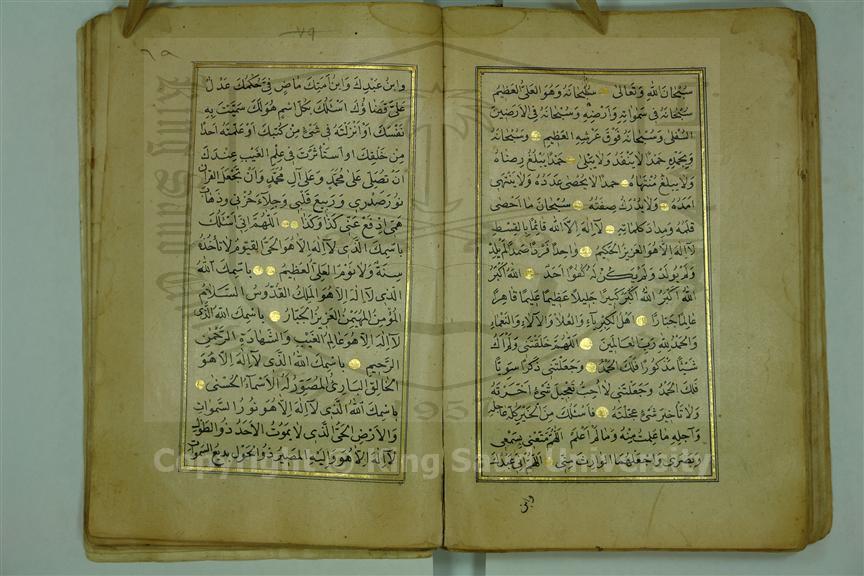 سبحان الله وتعالى سبحانه وهو العلي العظيم
سبحانه في سمواته وارضه وسبحانه في الارضين
السفلى وسبحانه فوق عرشه العظيم وسبحانه
وبحمده حمدا لا ينفد ولا يبلى حمدا يبلغ رضاه
ولا يبلغ منتهاه حمدا لا يحصى عدده ولا ينتهى
امده ولا يدرك صفته سبحان ما احصى
قلمه ومداد كلماته لا اله الا الله قائما بالقسط
لا اله الا هو العزيز الحكيم واحدا فردا صمدا لم يلد
ولم يولد ولم يكن له كفوا احد الله اكبر
الله اكبر الله اكبر كبيرا جليلا عظيما عليما قاهرا
عالما جبارا اهل الكبرياء والعلاء والالاء والنعماء
والحمد لله رب العالمين اللهم خلقتني ولم اك
شيئا مذكورا فلك الحمد وجعلتني ذكرا سويا
فلك الحمد وجعلتني لا احب تعجيل شيء اخرته
ولا تاخير شيء عجلته فاسئلك من الخير كله عاجله
وآجله ما علمت منه وما لم اعلم اللهم متعني بسمعي
وبصري واجعلهما الوارث مني اللهم اني عبدك
وابن
٧٩
٦٩
وابن عبدك وابن امتك ماض في حكمك عدل
علي قضاؤك اسئلك بكل اسم هو لك سميت به
نفسك او انزلته في شيء من كتبك او علمته احدا
من خلقك او استأثرت في علم الغيب عندك
ان تصلى على محمد وعلى آل محمد وان تجعل القرآن
نور صدري وربيع قلبي وجلاء حزني وذهاب
همي ادفع عني كذا وكذا اللهم اني اسئلك
باسمك الذى لا اله الا هو الحي القيوم لا تاخذه
سنة ولا نوم العلى العظيم باسمك الله
الذى لا اله الا هو الملك القدوس السلام
المؤمن المهيمن العزيز الجبار باسمك الله الذى
لا اله الا هو عالم الغيب والشهادة الرحمن
الرحيم باسمك الله الذى لا اله الا هو
الخالق البارئ المصور له الاسماء الحسنى
باسمك الله الذى لا اله الا هو نور السموات
والارض الحي الذى لا يموت الاحد ذو الطول
لا اله الا هو واليه المصير ذو الحول بديع السموات
King Saud U
1957
Copyright © King Saud University